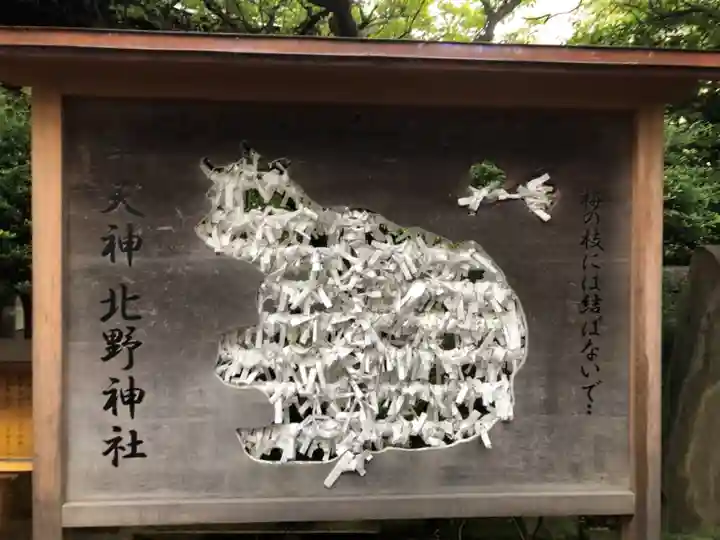 梅の枝には結ばないで…
天神北野神社